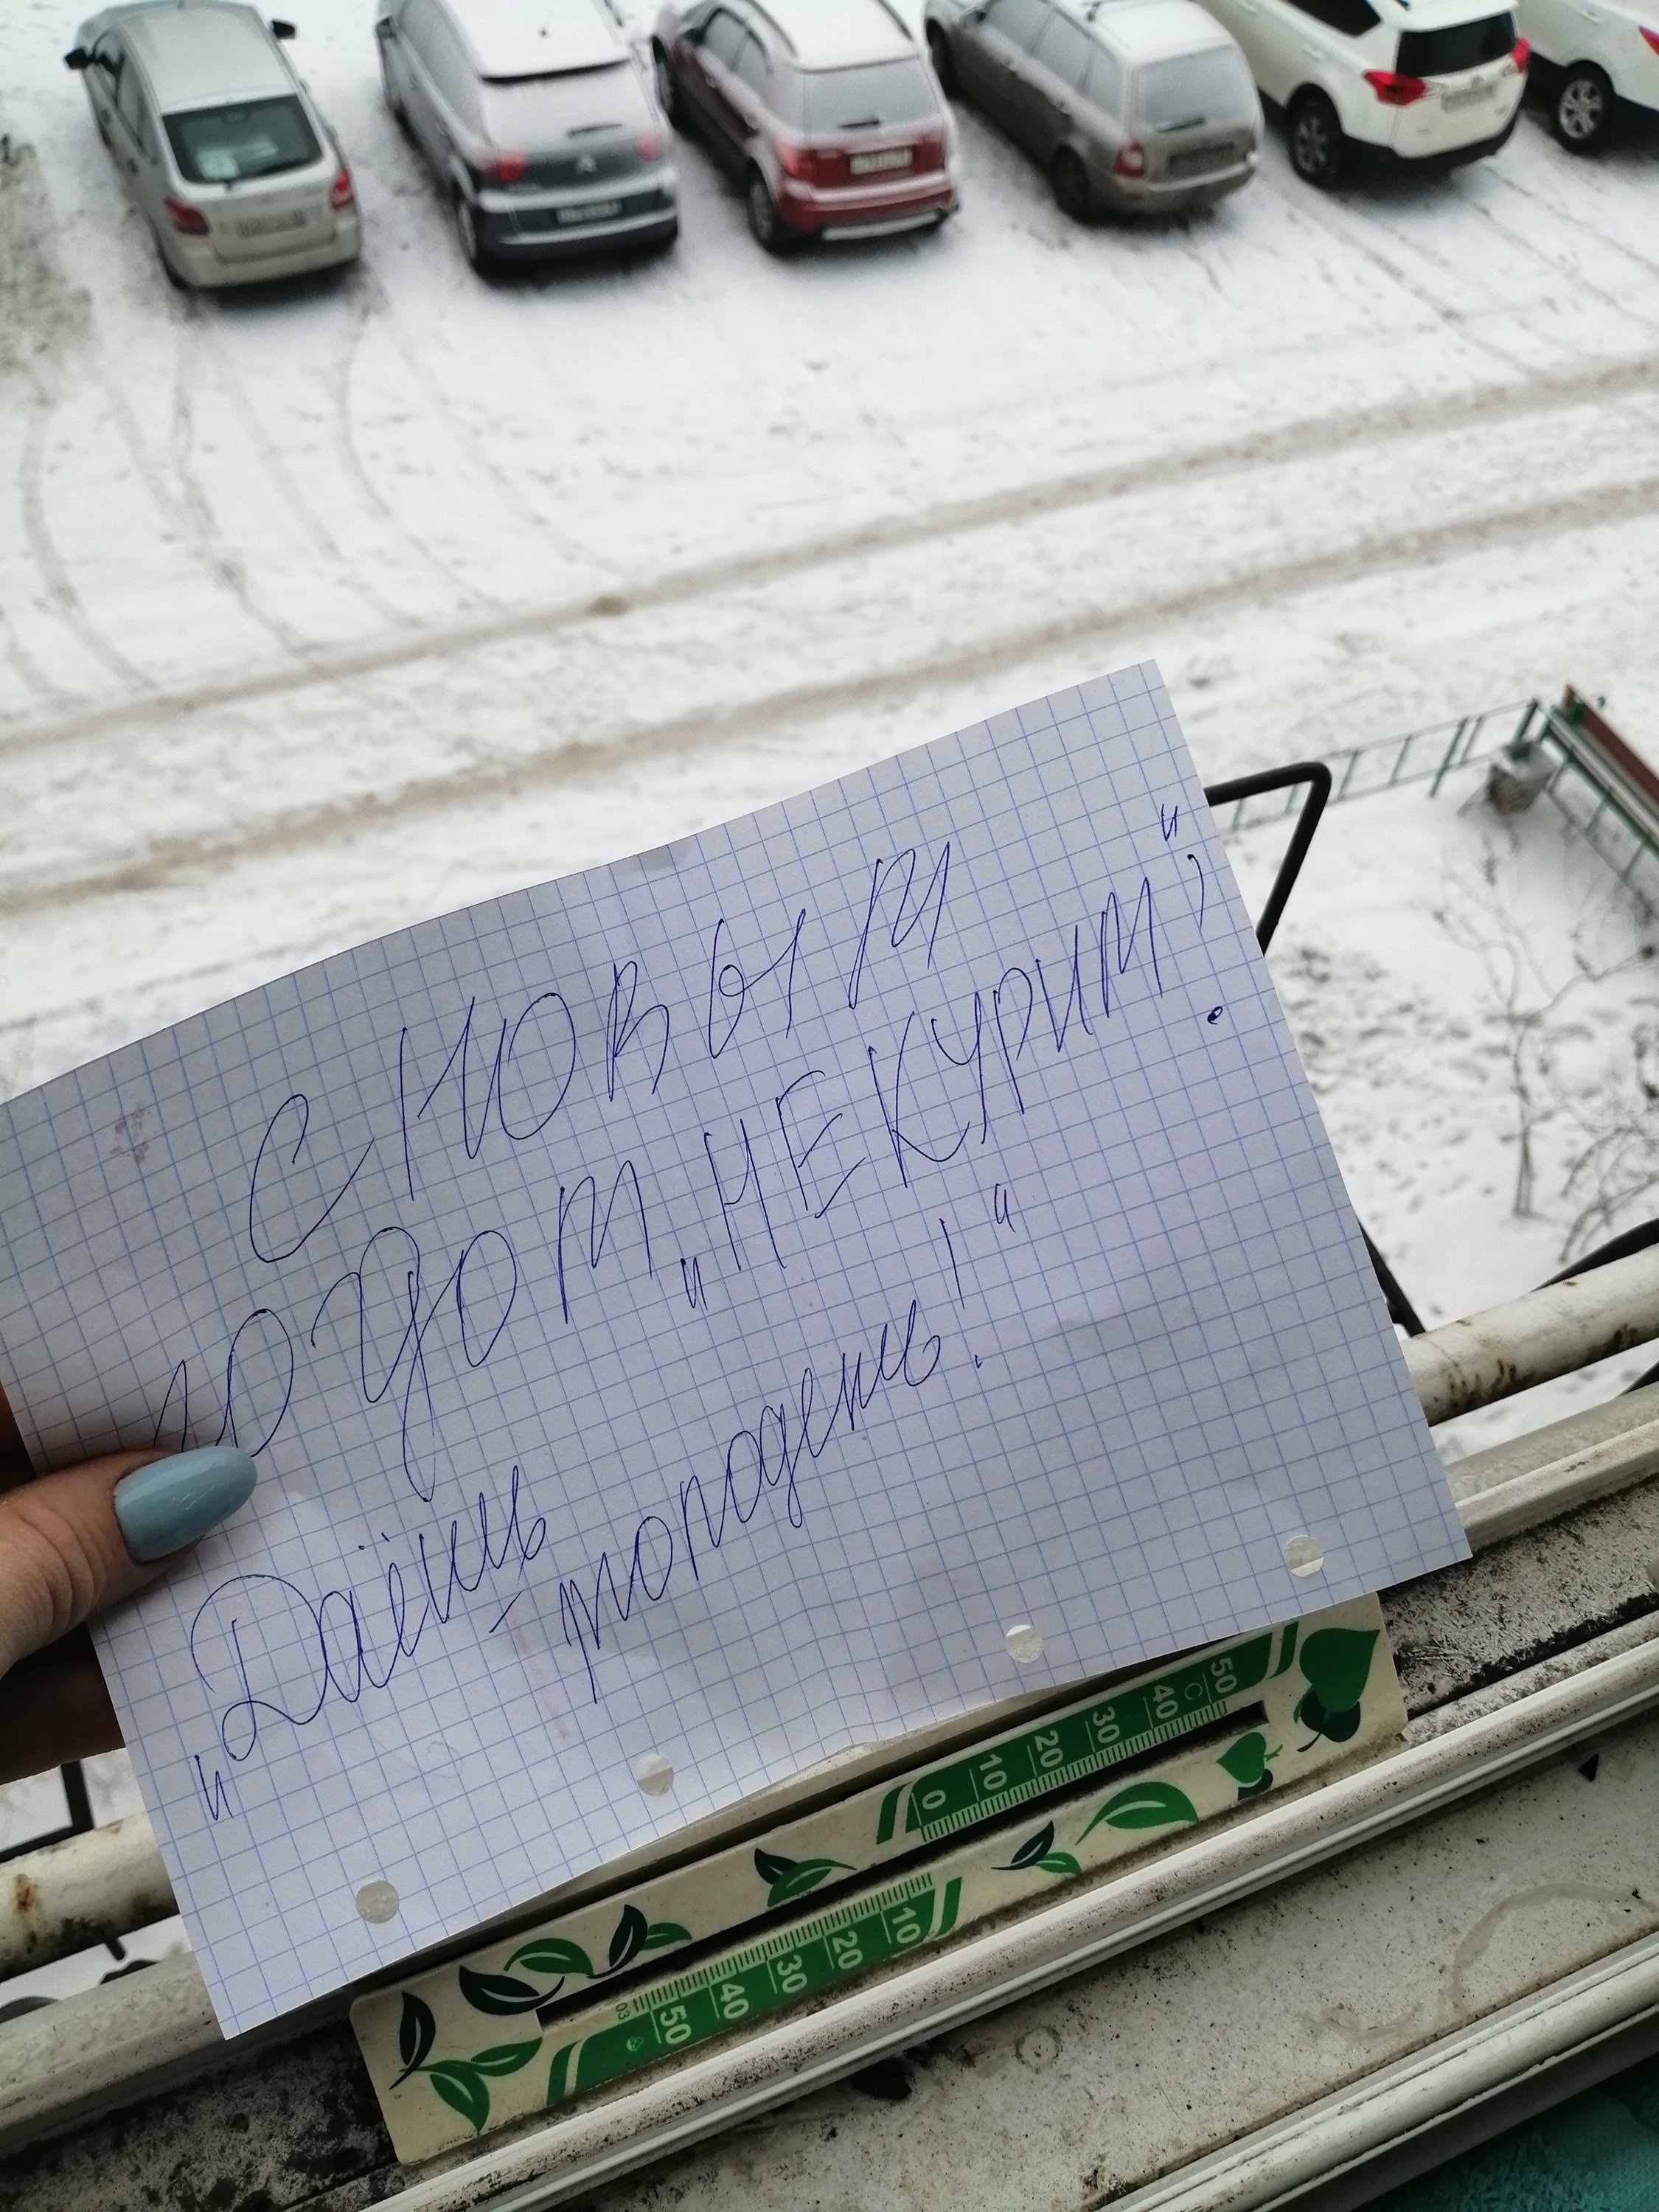 С Новым
годом „НЕКУРИМ"!
„Даёшь
- молодешь!"
50
C
40
30
20
10
0
10
20
30
40
50
03